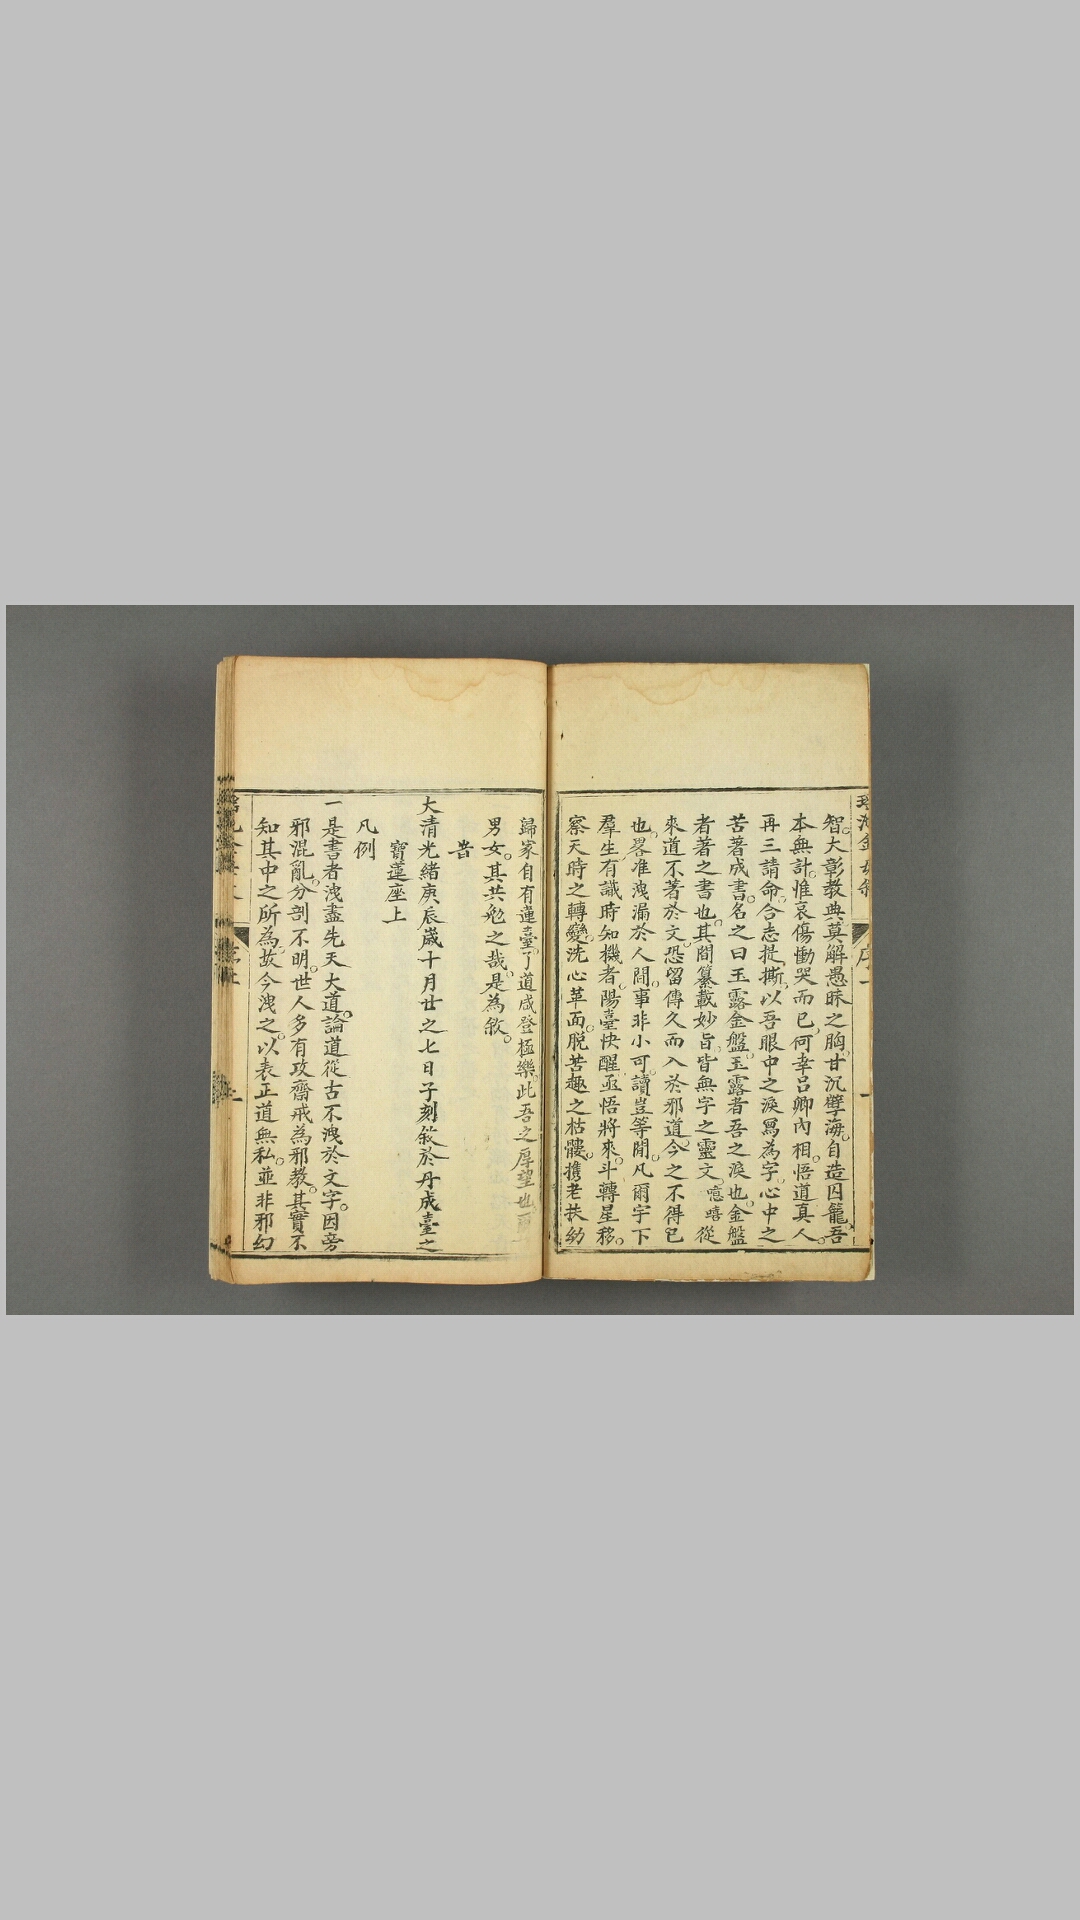 智大彰教典莫解愚昧之胸甘沉孽海自造囚籠吾
本無計惟哀傷慟哭而已何幸呂卿內相悟道真人
再三請命合志提撕以吾眼中之淚寫為字心中之
苦著成書名之曰玉露金盤玉露者吾之淚也金盤
者著之書也其間纂載妙旨皆無字之靈文噫嘻從
來道不著於文恐留傳久而入於邪道今之不得已
也畧准洩漏於人間事非小可讀豈等閒凡爾宇下
羣生有識時知機者陽臺快醒亟悟將來斗轉星移
察天時之轉變洗心革面脫苦趣之枯髏攜老扶幼
歸家自有蓮臺了道咸登極樂此吾之厚望也
男女其共勉之哉是為敘
旹
大清光緒庚辰歲十月廿之七日子刻敘於丹成臺之
寶蓮座上
凡例
一是書者洩盡先天大道論道從古不洩於文字因旁
邪混亂分剖不明世人多有攻齋戒為邪教其實不
知其中之所為故今洩之以表正道無私並非邪幻